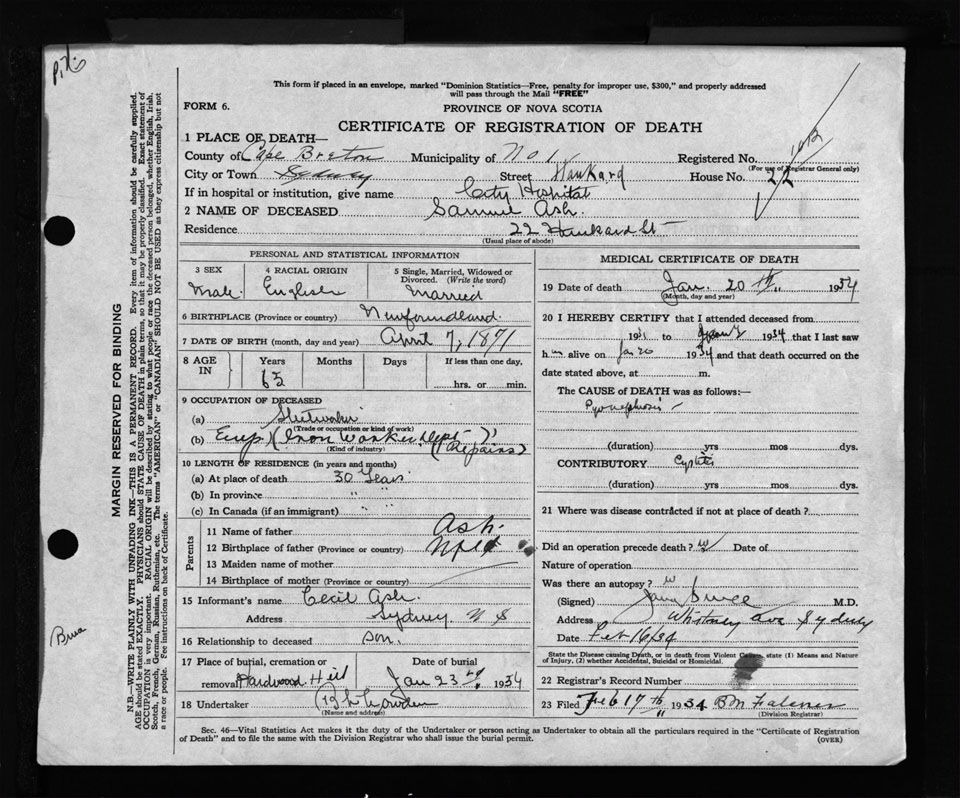 This form if placed in an envelope, marked "Dominion Statistics—Free, penalty for improper use, $300," and properly addressed
will pass through the Mail "FREE"
FORM 6.
PROVINCE OF NOVA SCOTIA
CERTIFICATE OF REGISTRATION OF DEATH
1 PLACE OF DEATH—
County of Cape Breton Municipality of No 1 Registered No.
(For use of Registrar General only)
City or Town Sydney Street Hankard House No. 22
If in hospital or institution, give name City Hospital
2 NAME OF DECEASED Samuel Ash.
Residence 22 Hankard St
(Usual place of abode)
PERSONAL AND STATISTICAL INFORMATION
3 SEX
Male.
4 RACIAL ORIGIN
English
5 Single, Married, Widowed or
Divorced. (Write the word)
Married
6 BIRTHPLACE (Province or country) Newfoundland.
7 DATE OF BIRTH (month, day and year) April 7, 1871
8 AGE IN Years Months Days If less than one day,
hrs. or min.
9 OCCUPATION OF DECEASED
(a) 
(Trade or occupation or kind of work)
(b) (Iron Worker Dept Repairs)
(Kind of industry)
10 LENGTH OF RESIDENCE (in years and months)
(a) At place of death 30 Years
(b) In province " "
(c) In Canada (if an immigrant) " "
Parents
11 Name of father Ash.
12 Birthplace of father (Province or country) Nfld
13 Maiden name of mother
14 Birthplace of mother (Province or country)
15 Informant's name Cecil Ash.
Address Sydney. N S
16 Relationship to deceased son.
17 Place of burial, cremation or
removal Hardwood Hill
Date of burial
Jan 23 1934
18 Undertaker
(Name and address)
MEDICAL CERTIFICATE OF DEATH
19 Date of death Jan. 20th 1934
(Month, day and year)
20 I HEREBY CERTIFY that I attended deceased from
193 to 1934 that I last saw
him alive on Jan 20 1934 and that death occurred on
date stated above, at m.
The CAUSE OF DEATH was as follows:—
Pyonephrosis
(duration) yrs mos dys.
CONTRIBUTORY Cystitis
(duration) yrs mos dys.
21 Where was disease contracted if not at place of death?
Did an operation precede death? Date of
Nature of operation
Was there an autopsy?
(Signed) Bruce M.D.
Address Whitney Ave Sydney
Date Feb 16/34
State the Disease causing Death, or in death from Violent Causes, state (1) Means and Nature
of Injury, (2) whether Accidental, Suicidal or Homicidal.
22 Registrar's Record Number
23 Filed Feb 17th 1934
(Division Registrar)
Sec. 46—Vital Statistics Act makes it the duty of the Undertaker or person acting as Undertaker to obtain all the particulars required in the "Certificate of Registration
of Death" and to file the same with the Division Registrar who shall issue the burial permit.
(OVER)
MARGIN RESERVED FOR BINDING
N.B.—WRITE PLAINLY WITH UNFADING INK—THIS IS A PERMANENT RECORD. Every item of information should be carefully supplied.
AGE should be stated EXACTLY. PHYSICIANS should STATE CAUSE OF DEATH in plain terms, so that it may be properly classified. Exact statement of
OCCUPATION is very important. RACIAL ORIGIN will be described by stating to what people or race the deceased person belonged, whether English, Irish,
Scotch, French, German, Russian, Ruthenian, etc. The terms "AMERICAN" or "CANADIAN" SHOULD NOT BE USED as they express citizenship but not
a race or people. See instructions on back of Certificate.